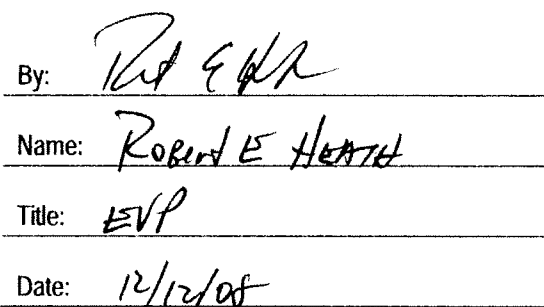 By:
Name: Robert E HEATH
Title: EVP
Date: 12/12/08